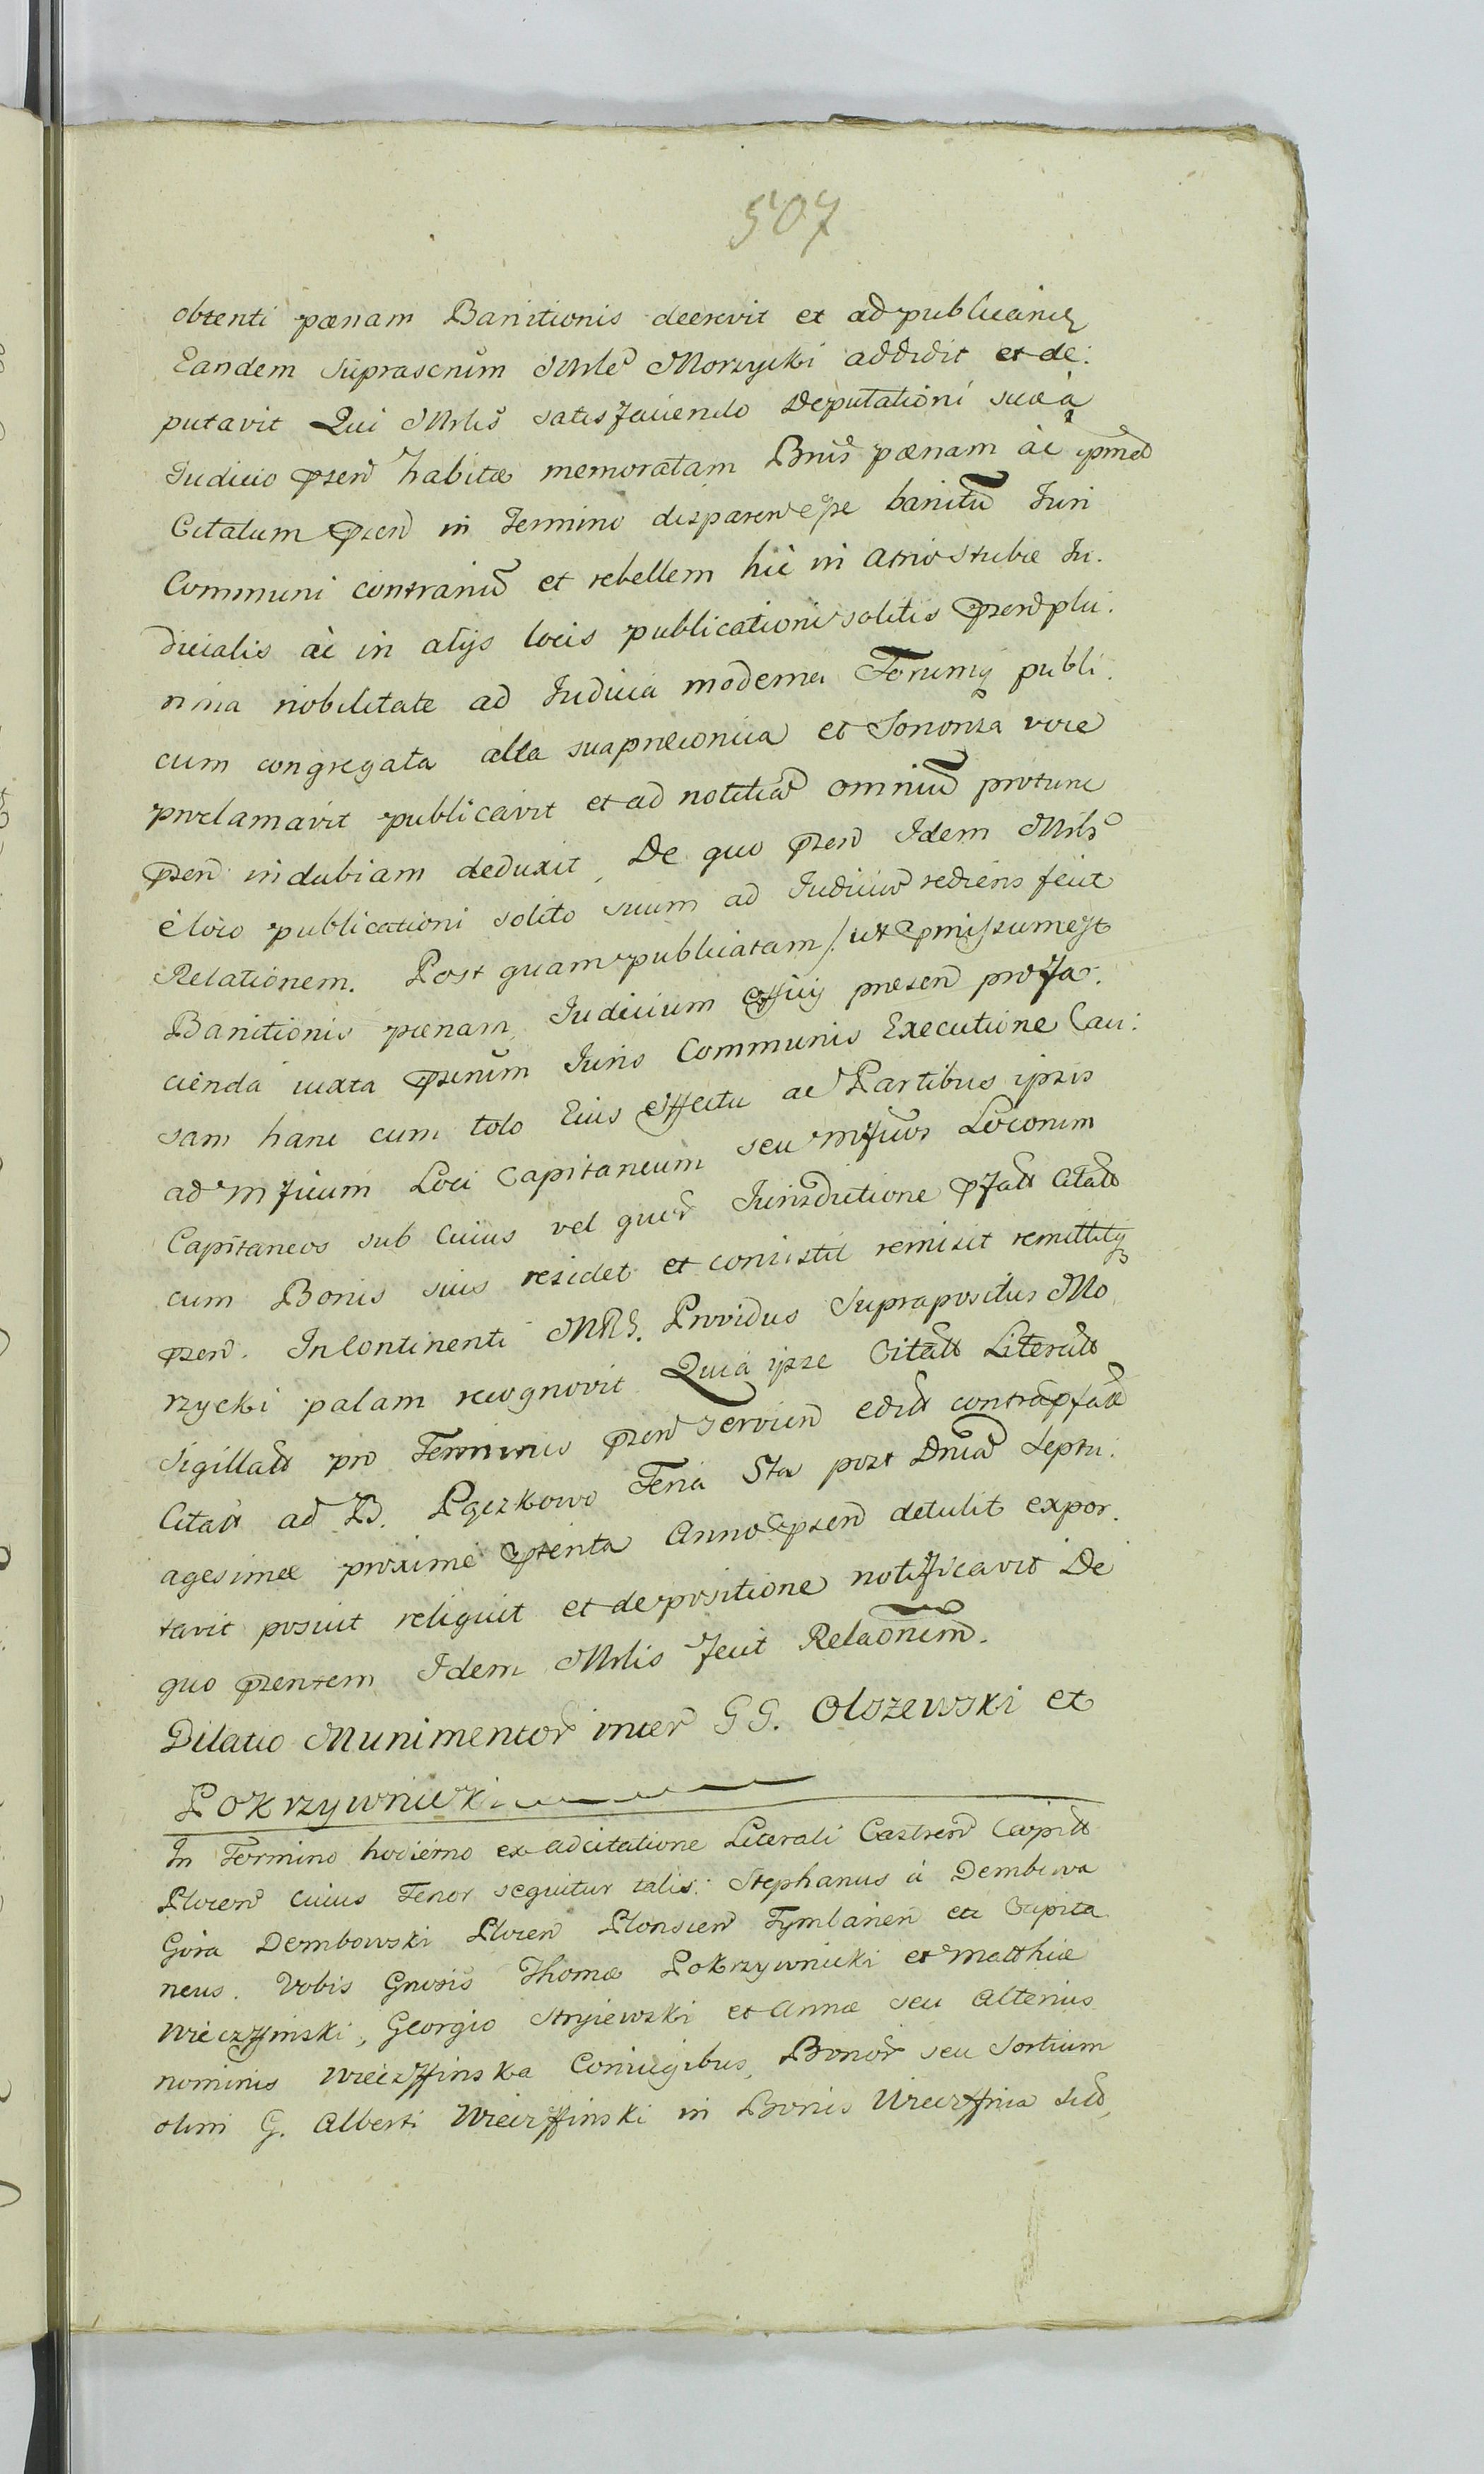 507
obtenti pænam Banitionis decrevit et ad publicand
Eandem Suprascrŭm Mrlē Morzycki addidit et de:
putavit Qui Mrlis satisfaciendo Deputationi suæ à
Iudicio pzen habitæ memoratam Bnis pænam ac ipmed
Citatum pzen in Termino disparen esse banitū Iuri
Communi contrariū et rebellem hic in Atrio Stubæ Iu.
dicialis ac in alijs locis publicationi solitis pzen plu.
rima nobilitate ad Iudicia moderna Forumq publi.
cum congregata alta sua præconica et Sonorsa voce
proclamavit publicavit et ad notitiā omniū protunc
pzen indubiam deduxit, De quo pzen Idem Mrls
è loco publicationi solito suum ad Iudiciū rediens fecit
Relationem. Post quam publicatam /: ut pmissum est
Banitionis pænam Iudicium Officij præsen pro fa.
cienda iuxta pscrŭm Iuris Communis Executione Cau:
sam hanc cum toto Eius effectu ac Partibus ipsis
ad mficum Loci Capitaneum seu mficos Locorum
Capitaneos sub cuius vel quor Iurisdictione pfatt Citatt
cum Bonis suis residet et consistit remisit remittitq
pzen. Incontinenti MRS. Providus Suprapositus Mo
rzycki palam recognovit Quia ipse Citatt Literatt
Sigillatt pro Terminis pzen servien editt contra pfatt
Citatt ad B. Pączkowo Feria 5ta post Dnicā Septu.
agesimæ proxime pterita Anno pzen detulit expor.
tavit posuit reliquit et de positione notificavit De
quo pzentem Idem Mrlis fecit Relaōnem.
Dilatio Munimentor inter GG. Olszewski et
Pokrzywnicki
In Termino hodierno ex adcitatione Literali Castren Capitt
Plocen cuius Tenor sequitur talis: Stephanus à Dembowa
Góra Dembowski Plocen Plonscen Tymbarien etc Capita
neus. Vobis Gnosis Thomæ Pokrzywnicki et Matthiæ
Wieczffinski, Georgio Stryiewski et Annæ seu alterius
nominis Wieczffinska Coniugibus, Bonor seu Sortium
olim G. Alberti Wieczffinski in Bonis Wieczffnia